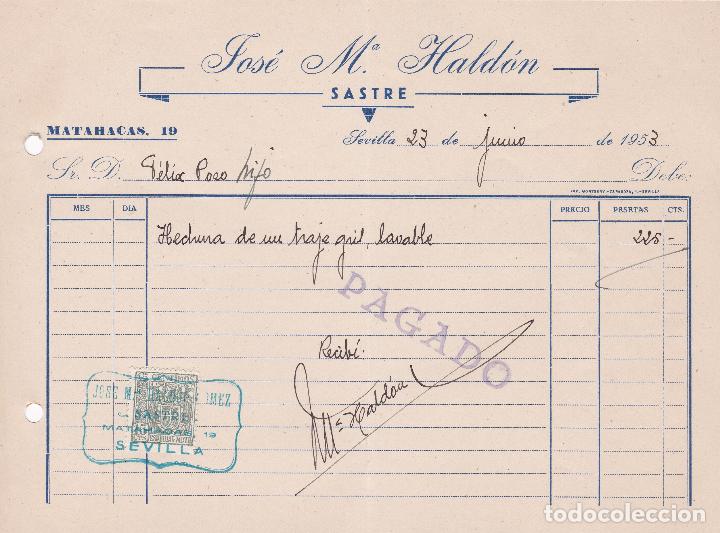 José Mª Haldón
SASTRE
MATAHACAS, 19
Sevilla 23 de junio de 1953
Sr. D. Félix Pozo hijo Debe:
MES DIA PRECIO PESETAS CTS.
Hechura de un traje gril, lavable 225 -
PAGADO
Recibí:
JOSE Mª HALDON
SASTRE
MATAHACAS, 19
SEVILLA
Mª Haldón
todocoleccion.net